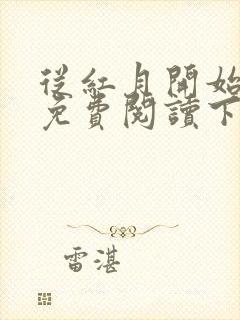 從紅月開始
免費閱讀下
雷湛